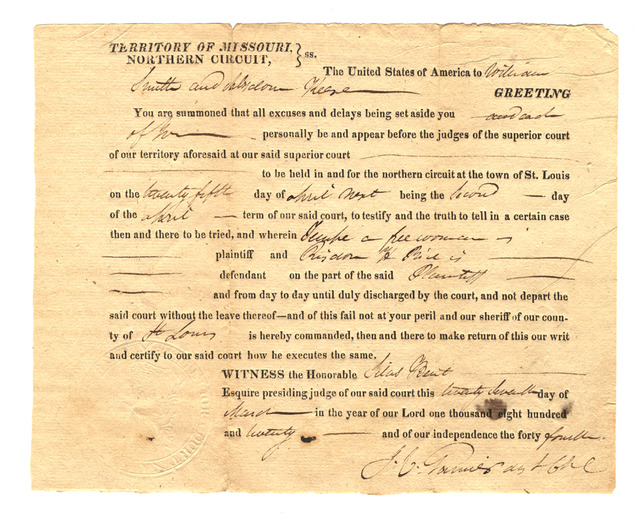 TERRITORY OF MISSOURI, } ss.
NORTHERN CIRCUIT,
The United States of America to William
Smith and Keese GREETING
You are summoned that all excuses and delays being set aside you and each
of you personally be and appear before the judges of the superior court
of our territory aforesaid at our said superior court
to be held in and for the northern circuit at the town of St. Louis
on the twenty fifth day of april next being the second day
of the april term of our said court, to testify and the truth to tell in a certain case
then and there to be tried, and wherein Tempe a free woman is
plaintiff and Risdon H Price is
defendant on the part of the said Plaintiff
and from day to day until duly discharged by the court, and not depart the
said court without the leave thereof—and of this fail not at your peril and our sheriff of our coun-
ty of St Louis is hereby commanded, then and there to make return of this our writ
and certify to our said court how he executes the same.
WITNESS the Honorable Silas Bent
Esquire presiding judge of our said court this twenty seventh day of
March in the year of our Lord one thousand eight hundred
and twenty and of our independence the forty fourth